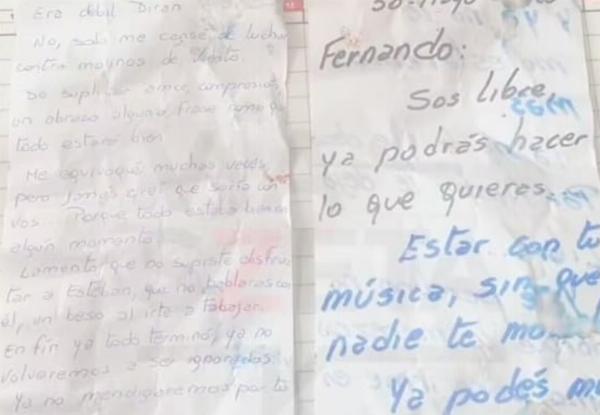 Era débil Diran
No, solo me cansé de lucha
contra molinos de viento.
De suplicar amor, comprensión
un abrazo alguna frase como que
todo estará bien
Me equivoqué muchas veces,
pero jamás creí que sería con
vos. Porque todo estaba bien en
algún momento.
Lamento que no supiste disfru
tar a Esteban, que no hablaras con
él, un beso al irte a trabajar.
En fin ya todo terminó, ya no
volveremos a ser ignorados.
Ya no mendigaremos por tu
30. Mayo
Fernando:
Sos libre,
ya podrás hacer
lo que quieras.
Estar con tu
música, sin que
nadie te mo
Ya podés